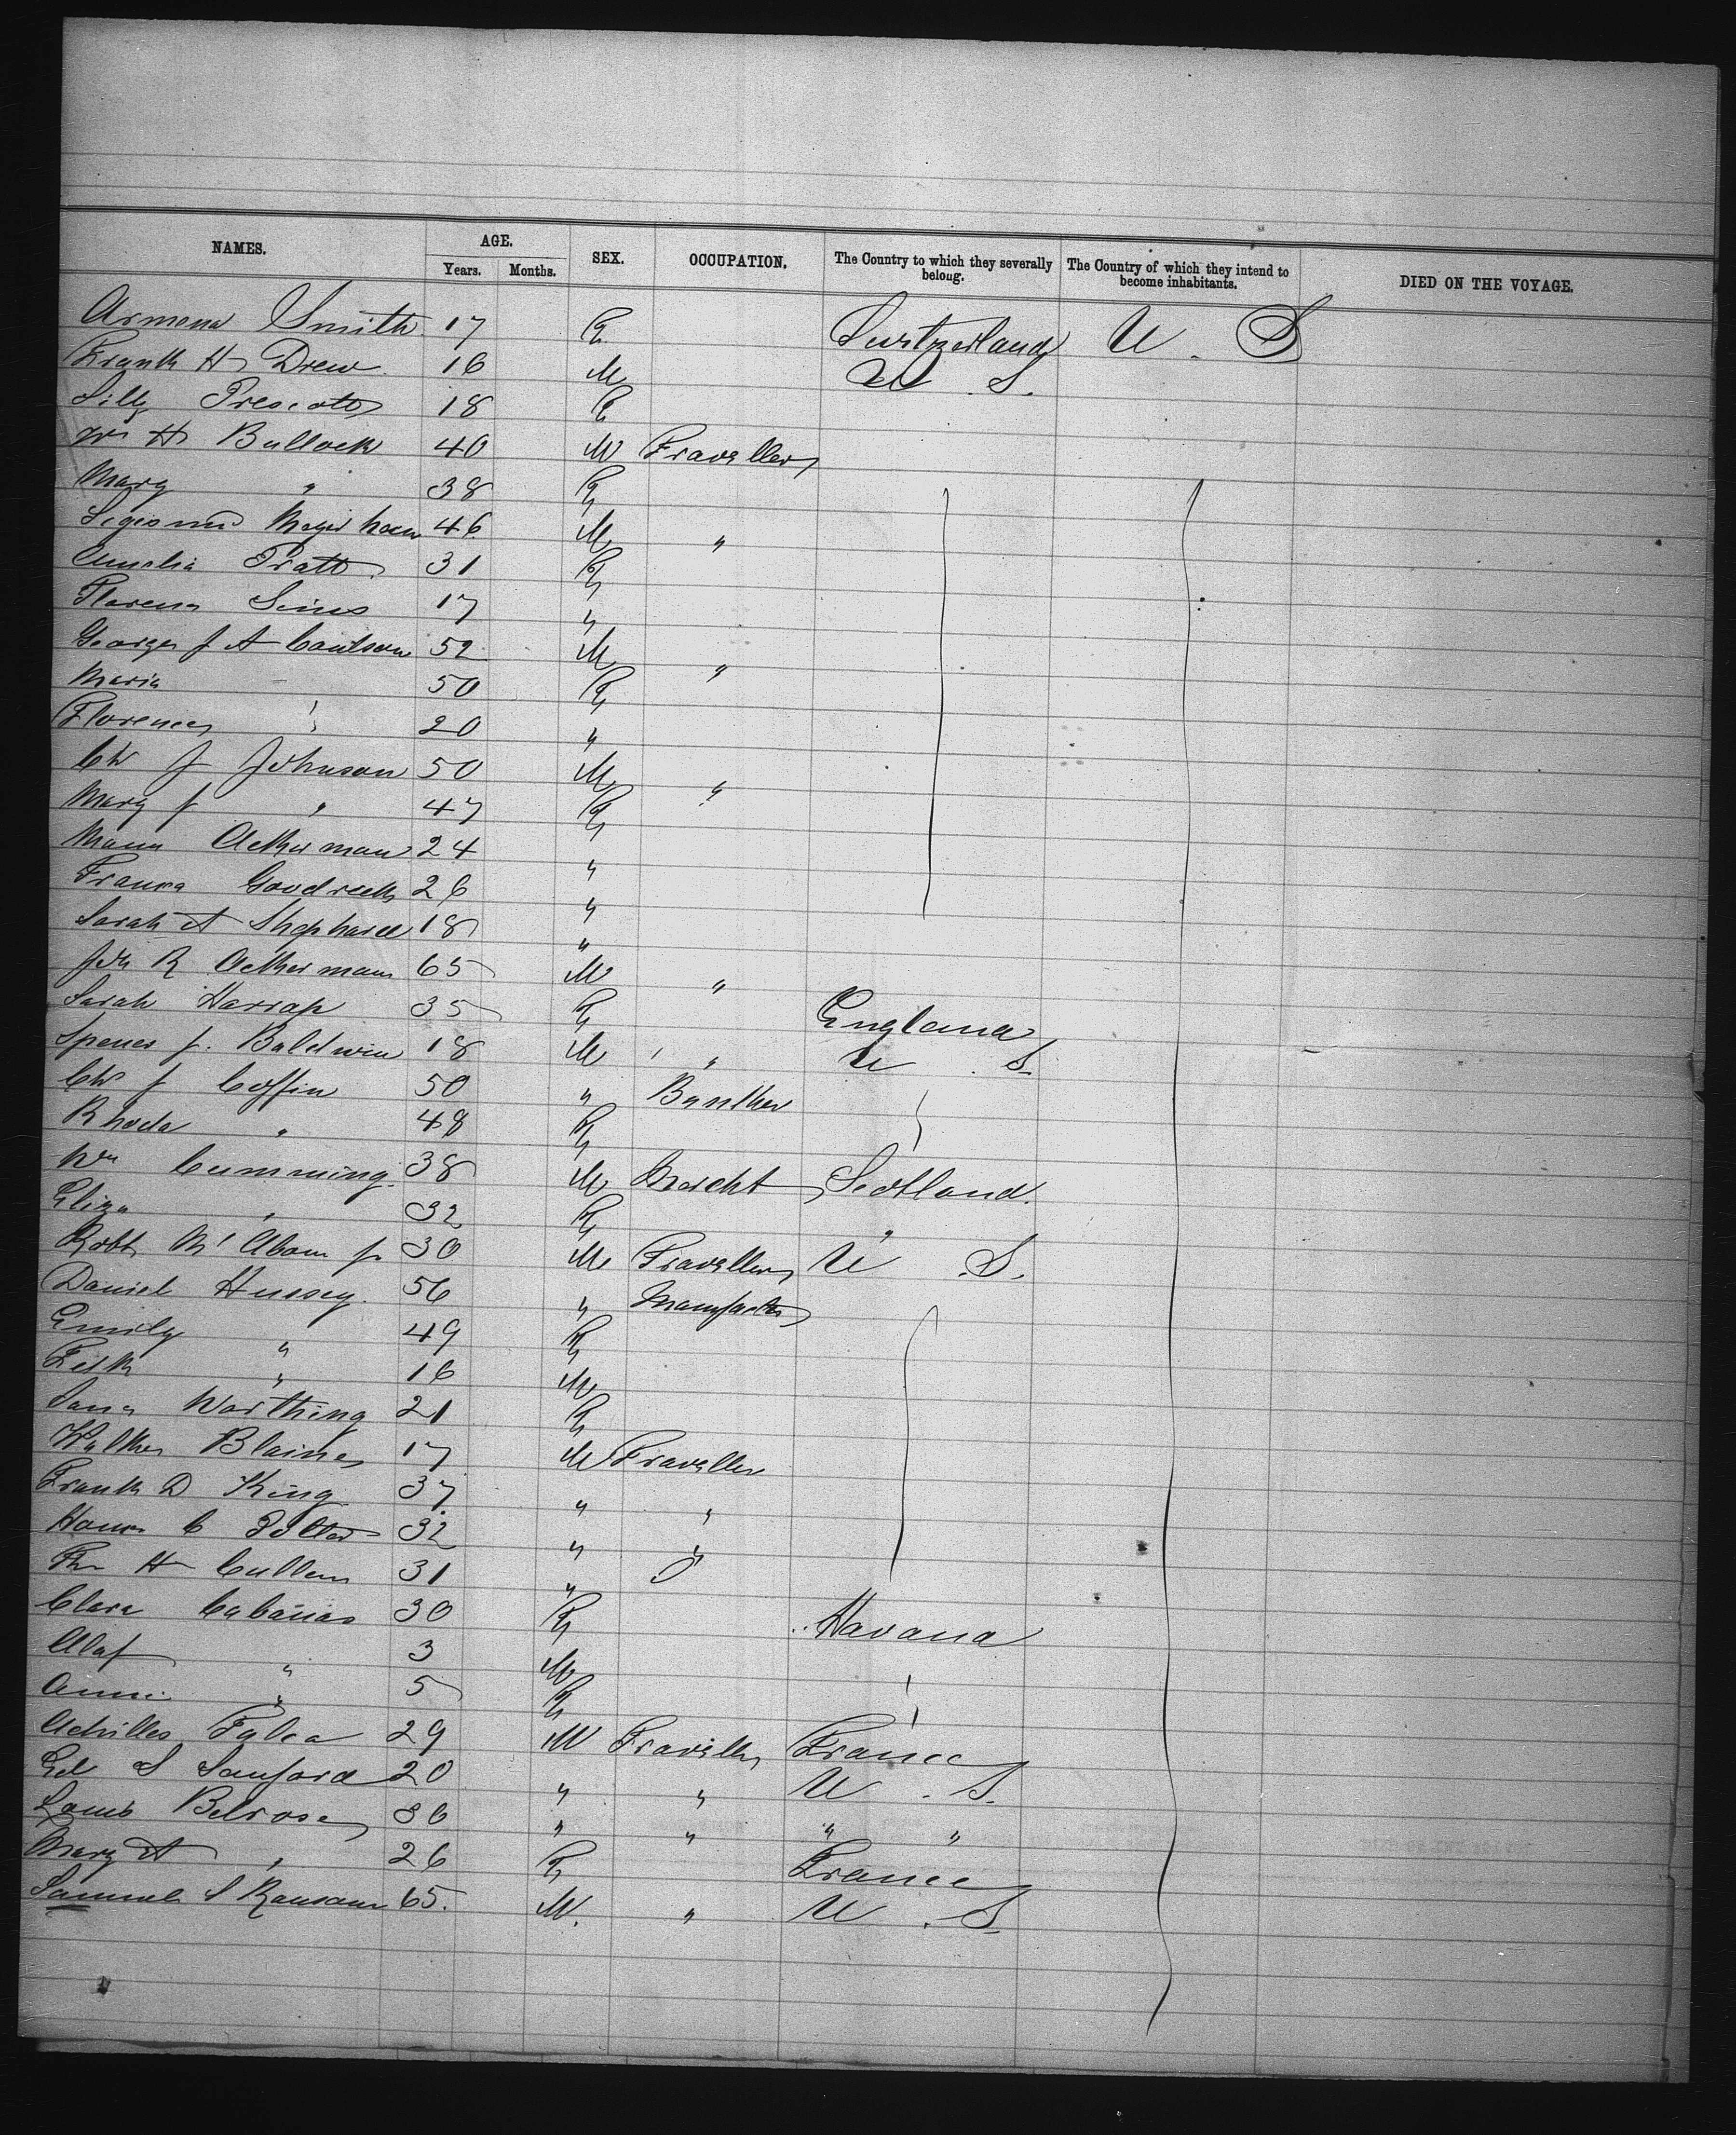 NAMES. AGE. SEX. OCCUPATION. The Country to which they severally belong. The Country of which they intend to become inhabitants. DIED ON THE VOYAGE.
Years. Months.
Smith 17 F Switzerland U. S
Frank H Drew 16 M U. S.
Lilly Prescott 18 F
Wm H Bullock 40 M Traveller
Mary " 38 F
46 M "
Amelia Pratt 31 F
Florena Sims 17 "
George J A Coulson 52 M "
Maria 50 F
Florence " 20 "
Ch J Johnson 50 M "
Mary J " 47 F
Ackerman 24 "
Goodrich 26 "
Sarah A Shephard 18 "
Jn R Ackerman 65 M "
Sarah Harrap 35 F England
Spencer J. Baldwin 18 M " U S.
Ch J Coffin 50 " Banker
Rhoda " 48 F
Wm Cumming 38 M Mercht Scotland.
Eliza " 32 F "
Robt Mc Adam jr 30 M Traveller U S.
Daniel Hussey 56 " Manufactr
Emily " 49 F
" 16 M
Worthing 21 F
Walker Blaine 17 M Traveller
Frank D King 37 " "
C Potter 32 " "
Th H Cullen 31 "
Clara Cabanas 30 F Havana
Olaf " 3 M
Annie " 5 F
Achilles 29 M Traveller France
Ed S Sanford 20 " " U. S.
Louis Belrose 36 " " " "
Mary A " 26 F France
Samuel S Ransom 65. M. " U. S.